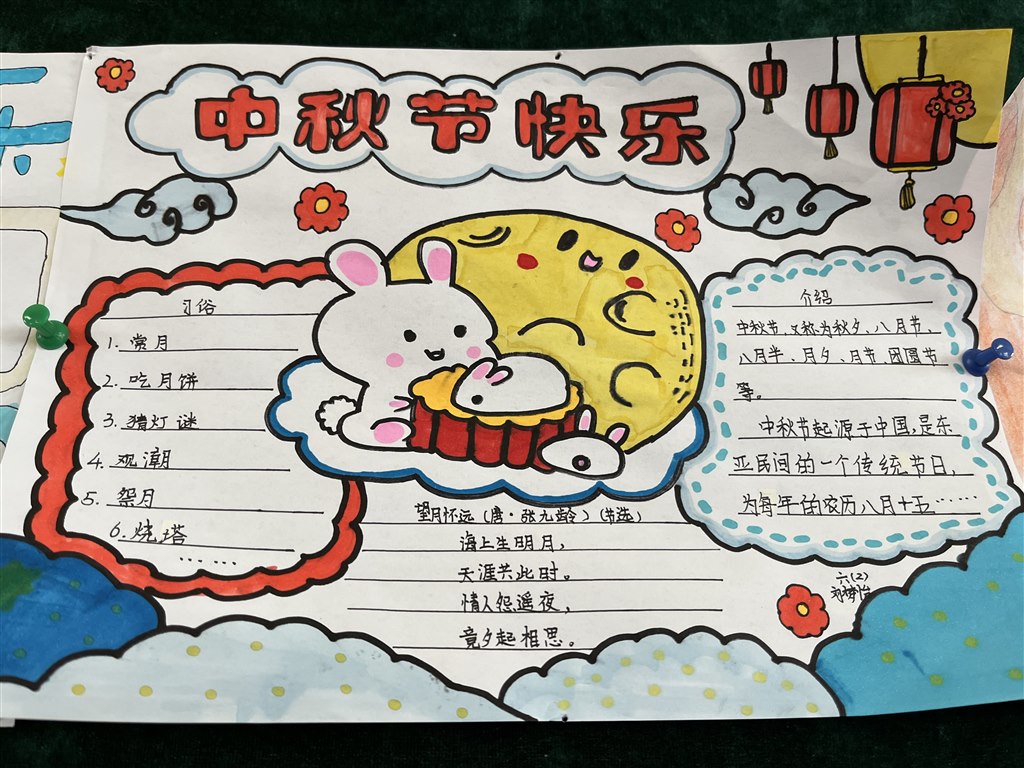 中秋节快乐
习俗
1. 赏月
2. 吃月饼
3. 猜灯谜
4. 观潮
5. 祭月
6. 烧塔
……
望月怀远（唐·张九龄）（节选）
海上生明月，
天涯共此时。
情人怨遥夜，
竟夕起相思。
介绍
中秋节，又称为秋夕、八月节、
八月半、月夕、月节、团圆节
等。
中秋节起源于中国，是东
亚民间的一个传统节日，
为每年的农历八月十五……
六(2)